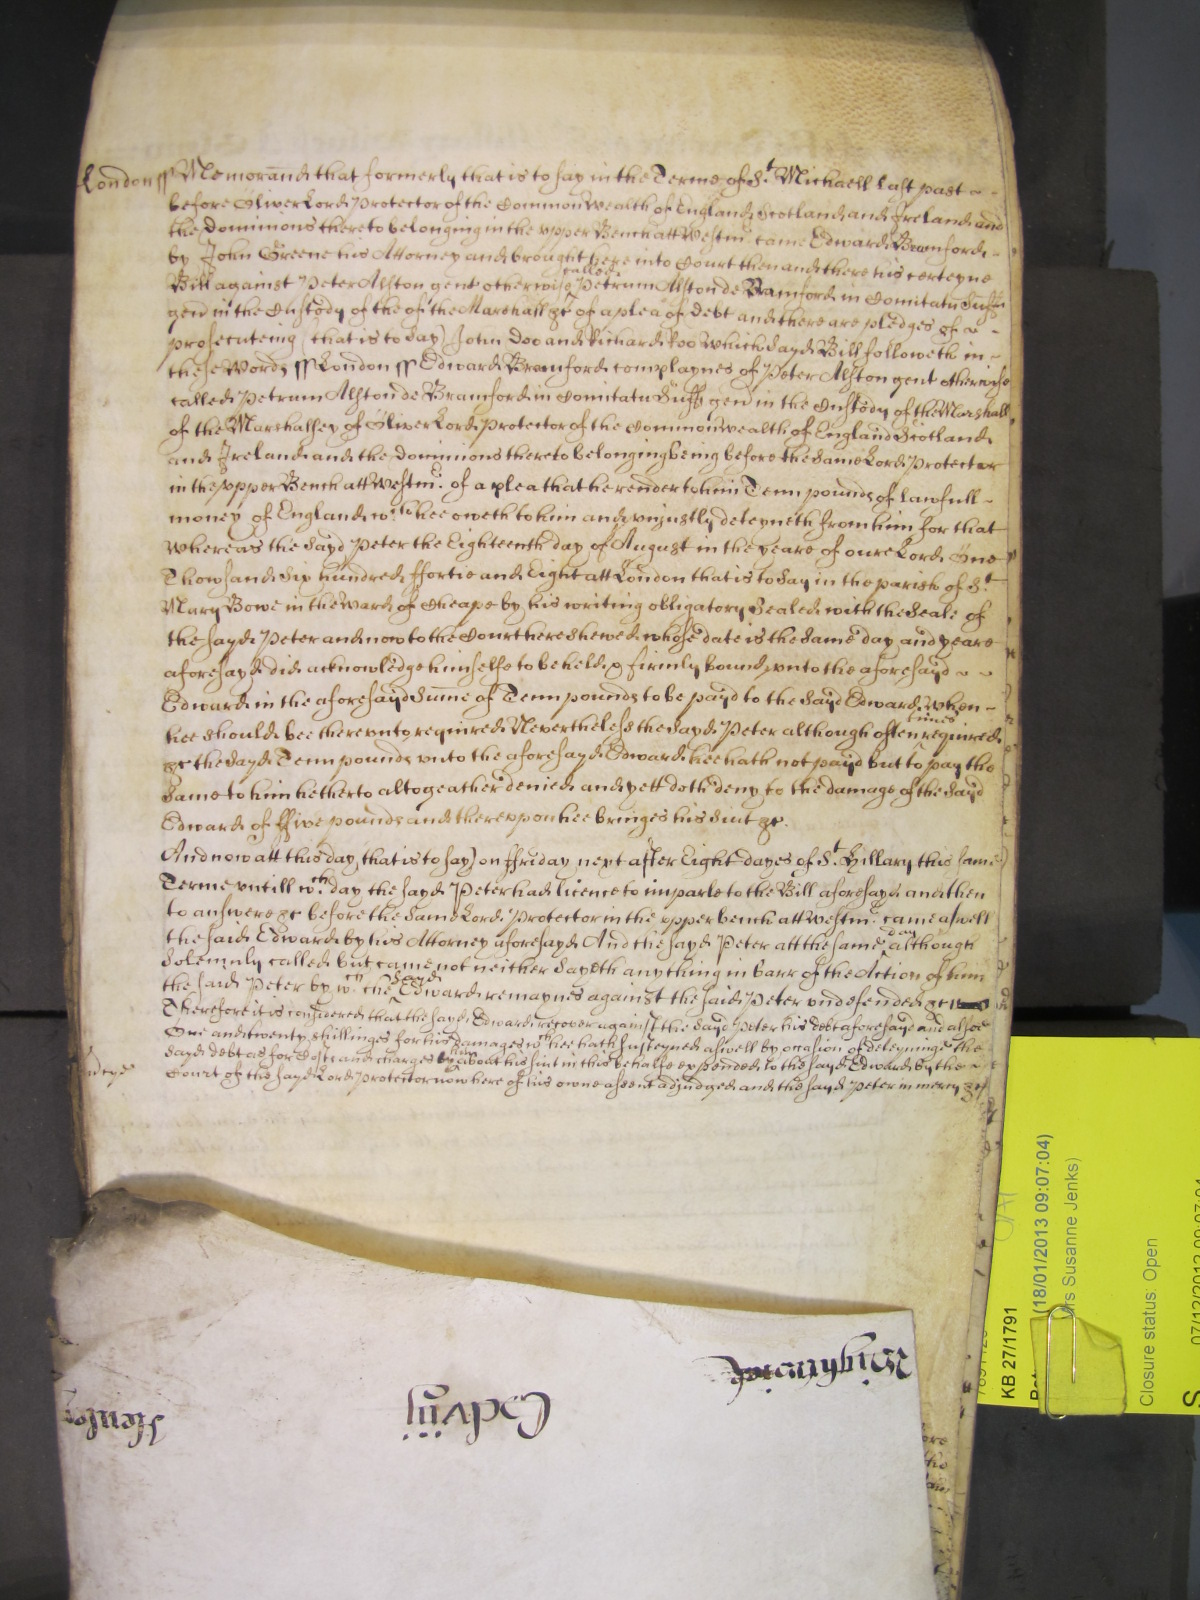 London ss Memorand that formerly that is to say in the Terme of St Michaell last past
before Oliver Lord Protector of the Common Wealth of England Scotland and Ireland and
the dominions thereto belonging in the upper Bench att Westmr came Edward Bramford
by John Greene his Attorney and brought here into Court then and there his certeyne
Bill against Peter Alston gent otherwise called Petrum Alston de Bramford in Comitatu Suff
gen in the Custody of the of the Marshall &c of a plea of debt and there are pledges of
prosecuteing (that is to say) John Doo and Richard Roo which sayd Bill followeth in
these Words ss London ss Edward Bramford complaynes of Peter Alston gent otherwise
called Petrum Alston de Bramford in Comitatu Suff gen in the Custody of the Marshall
of the Marshalsey of Oliver Lord Protector of the Common wealth of England Scotland
and Ireland and the dominions thereto belonging being before the same Lord Protector
in the upper Bench att Westmr of a plea that he render to him Tenn pounds of lawfull
money of England wch hee oweth to him and unjustly deteyneth from him for that
whereas the sayd Peter the Eighteenth day of August in the yeare of oure Lord One
Thowsand Six hundred ffortie and Eight att London that is to say in the parish of St
Mary Bowe in the Ward of Cheape by his writing obligatory Sealed with the Seale of
the sayd Peter and now to the Court here shewed whose date is the same day and yeare
aforesayd did acknowledge himselfe to be held & firmly bound unto the aforesayd
Edward in the aforesayd Sume of Tenn pounds to be payd to the sayd Edward when
hee should bee thereunto required Neverthelesse the sayd Peter although often times required
&c the sayd Tenn pounds unto the aforesayd Edward hee hath not payd but to pay the
same to him hetherto altogeather denied and yett doth deny to the damage of the sayd
Edward of ffive pounds and thereuppon hee bringes his Suit &c.
And now att this day (that is to say) on ffriday next after Eight dayes of St Hillary this same
Terme untill wch day the sayd Peter had licence to imparle to the Bill aforesayd and then
to answere &c before the same Lord Protector in the upper bench att Westmr came aswell
the said Edward by his Attorney aforesayd And the sayd Peter att the same day although
Solemnly called but came not neither sayeth any thing in barr of the Action of him
the said Peter by wch the sayd Edward remaynes against the said Peter undefended &c
Therefore it is considered that the sayd Edward recover against the sayd Peter his debt aforesayd and alsoe
One and twenty shillinges for his damages wch hee hath susteyned aswell by occasion of deteyninge the
sayd debt as for Costs and charges by him about his suit in this behalfe expended to the sayd Edward by the
Court of the sayd Lord Protector now here of his owne assent adjudged and the sayd Peter in mercy &c
Wightwick
KB 27/1791
(18/01/2013 09:07:04)
rs Susanne Jenks)
Closure status: Open